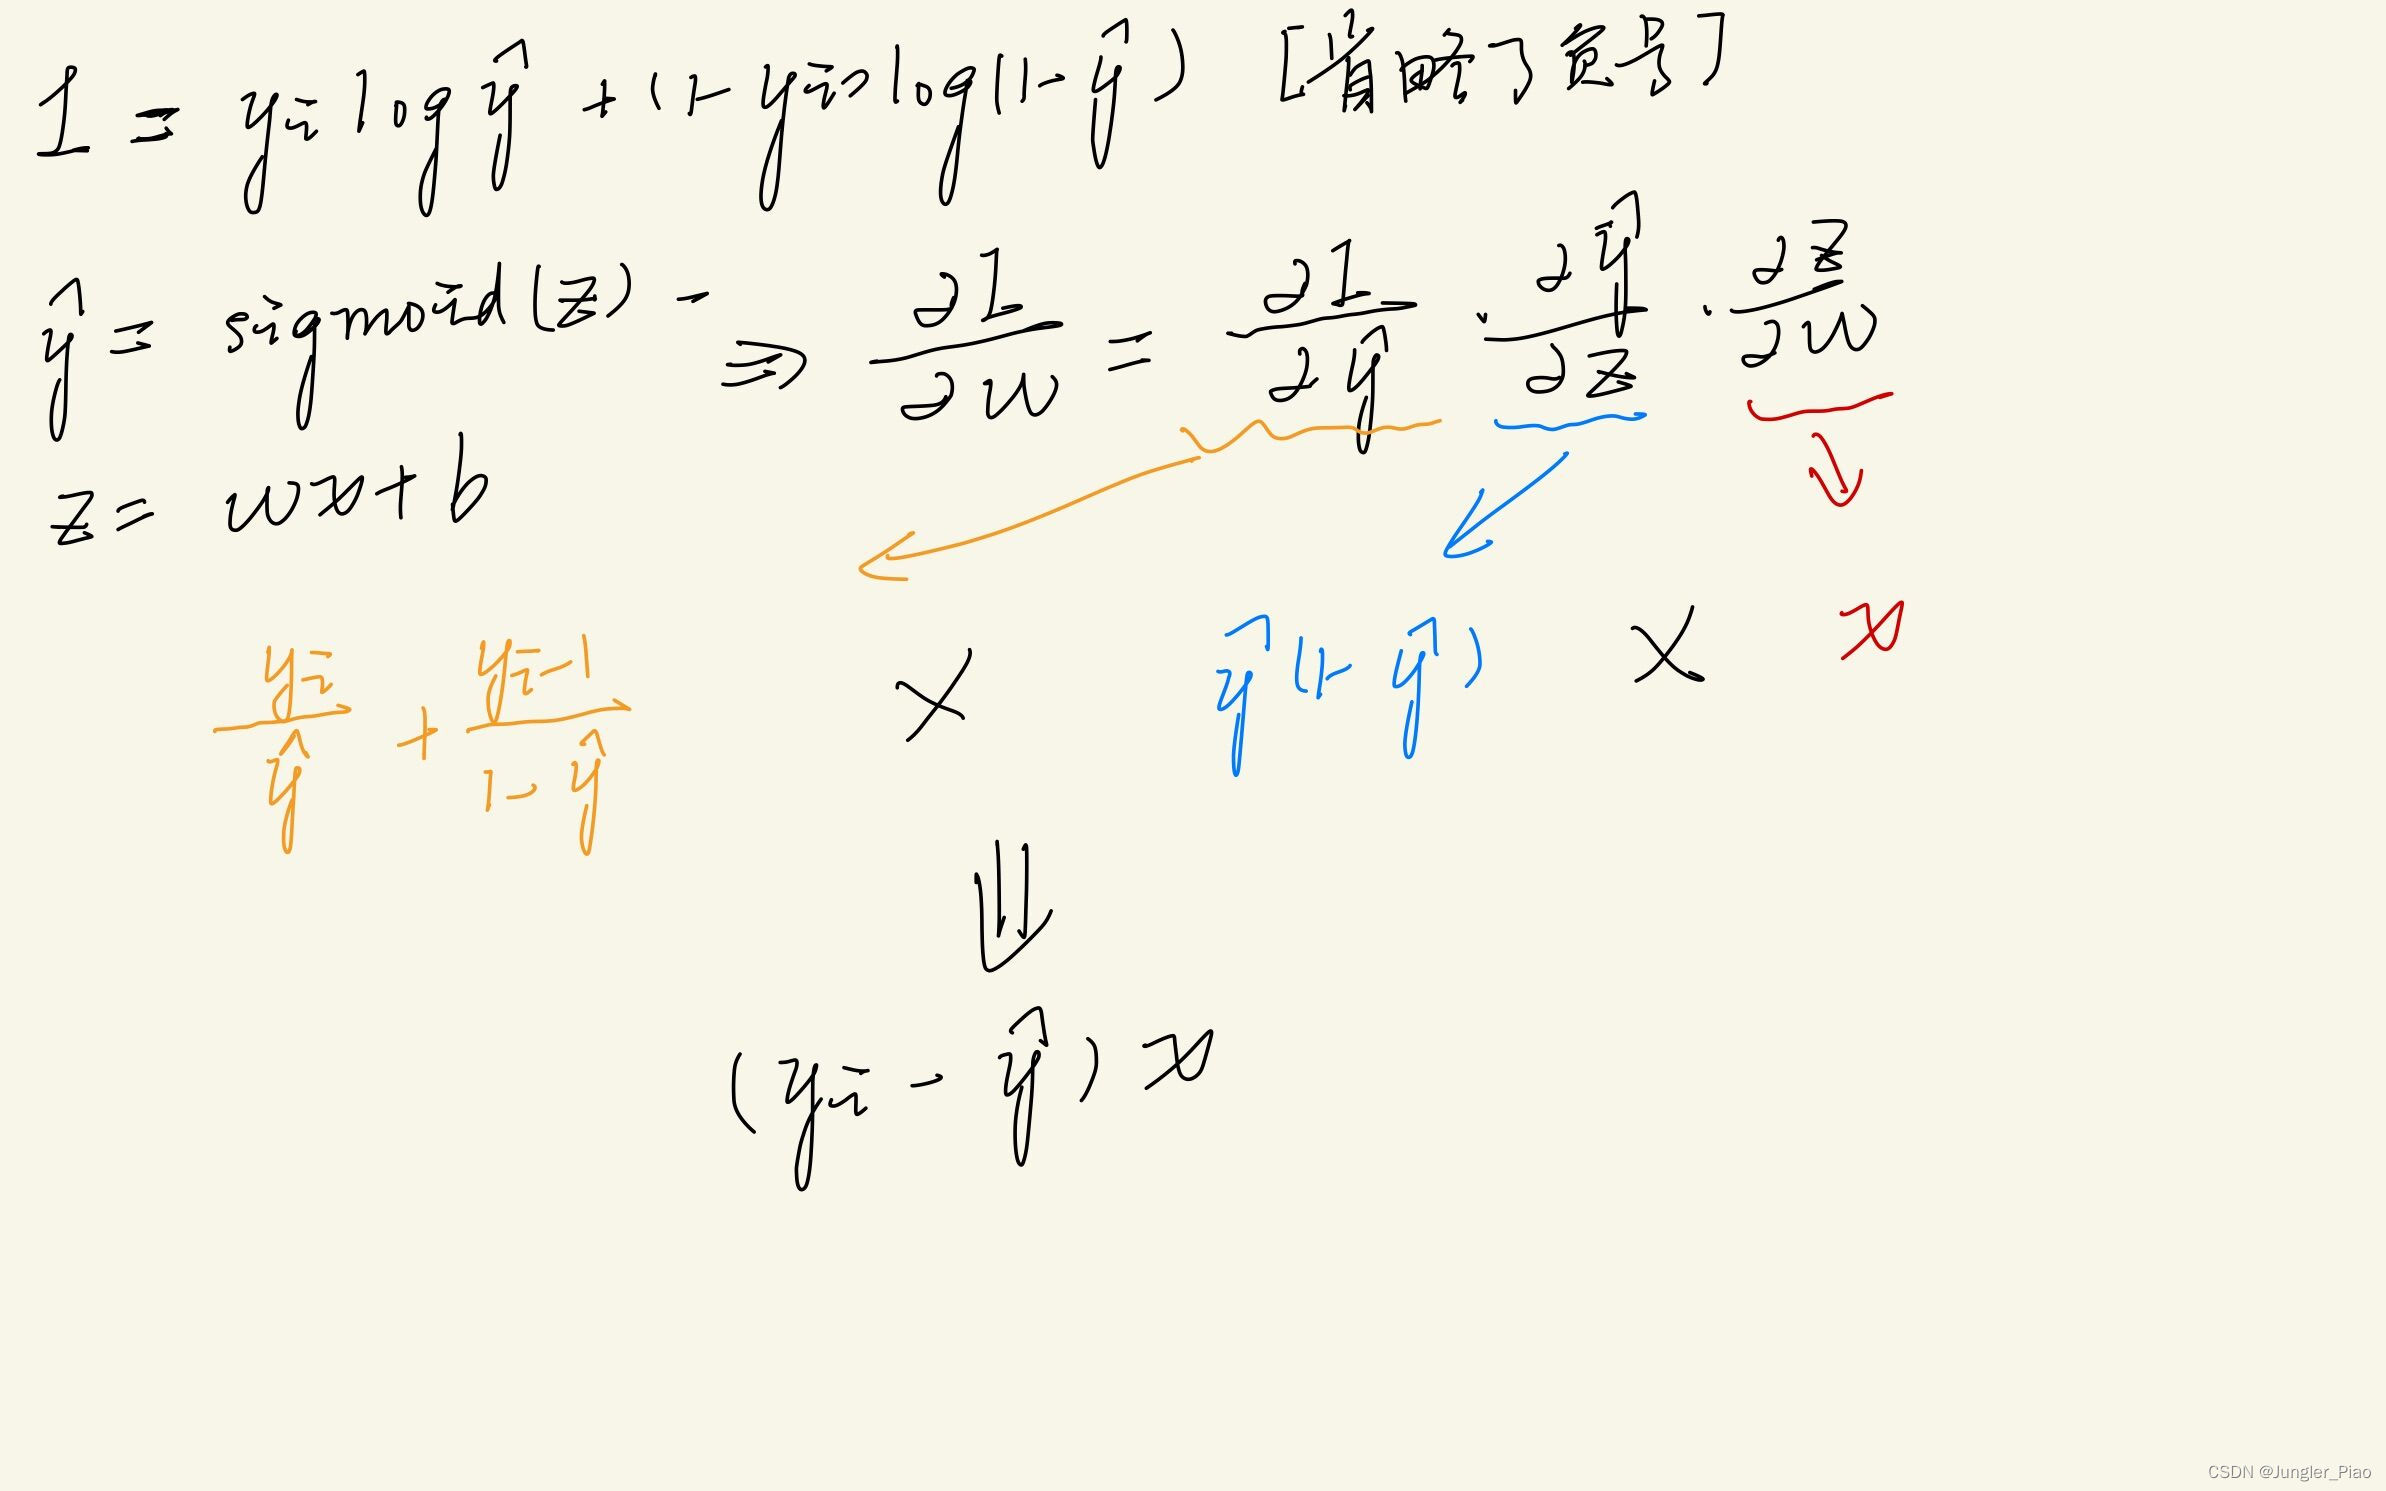 L = yᵢ log ŷ + (1 - yᵢ) log(1 - ŷ) [省略了负号]
ŷ = sigmoid(z) ⇒ ∂L/∂w = ∂L/∂ŷ · ∂ŷ/∂z · ∂z/∂w
z = wx + b
yᵢ/ŷ + (yᵢ-1)/(1-ŷ) × ŷ(1-ŷ) × x
⇓
(yᵢ - ŷ) x
CSDN @Jungler_Piao